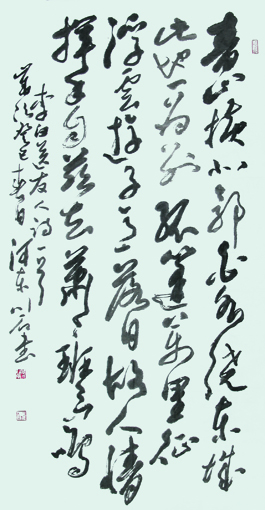 青山横北郭白水绕东城
此地一为别孤蓬万里征
浮云游子意落日故人情
挥手自兹去萧萧班马鸣
李白送友人诗一首
岁次癸巳春月河东 书